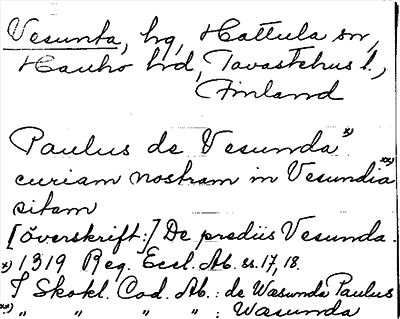 Vesunta, hg, Hattula sn,
Hauho hd, Tavastehus l.,
Finland
Paulus de Vesunda x)
curiam nostram in Vesundia xx)
sitam
[överskrift:] De prediis Vesunda.
x) 1319 Reg. Eccl. Ab. ss. 17, 18.
I Skokl. Cod. Ab.: de Wasunda Paulus
xx) " " " " : Wasunda